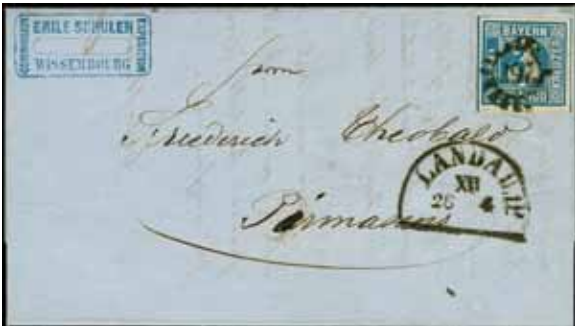 EMILE SCHULER
WISSEMBOURG
BAYERN
Herrn
Friederich Theobald
Pirmasens
LANDAU.P.
XII
26 4